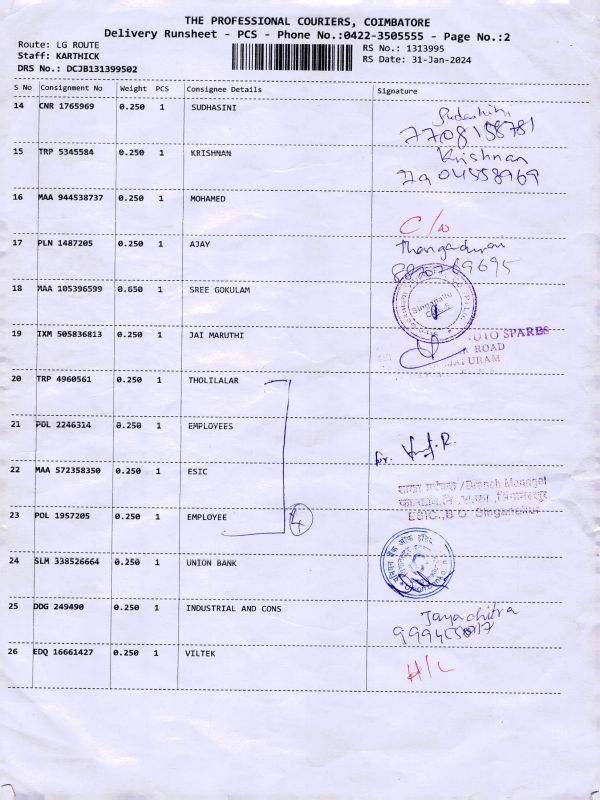 THE PROFESSIONAL COURIERS, COIMBATORE
Delivery Runsheet - PCS - Phone No.:0422-3505555 - Page No.:2
Route: LG ROUTE
Staff: KARTHICK
DRS No.: DCJB131399502
RS No.: 1313995
RS Date: 31-Jan-2024
S No Consignment No Weight PCS Consignee Details Signature
14 CNR 1765969 0.250 1 SUDHASINI
7708158781
15 TRP 5345584 0.250 1 KRISHNAN Krishnan
16 MAA 944538737 0.250 1 MOHAMED
17 PLN 1487205 0.250 1 AJAY
18 MAA 105396599 0.650 1 SREE GOKULAM
Singanallu
19 IXM 505836813 0.250 1 JAI MARUTHI
SPARES
ROAD
20 TRP 4960561 0.250 1 THOLILALAR
21 POL 2246314 0.250 1 EMPLOYEES
22 MAA 572358350 0.250 1 ESIC
/Branch Manager
ESIC.,B.O. Singanallur
23 POL 1957205 0.250 1 EMPLOYEE 4
24 SLM 338526664 0.250 1 UNION BANK
25 DDG 249490 0.250 1 INDUSTRIAL AND CONS Jayachitra
26 EDQ 16661427 0.250 1 VILTEK H/L